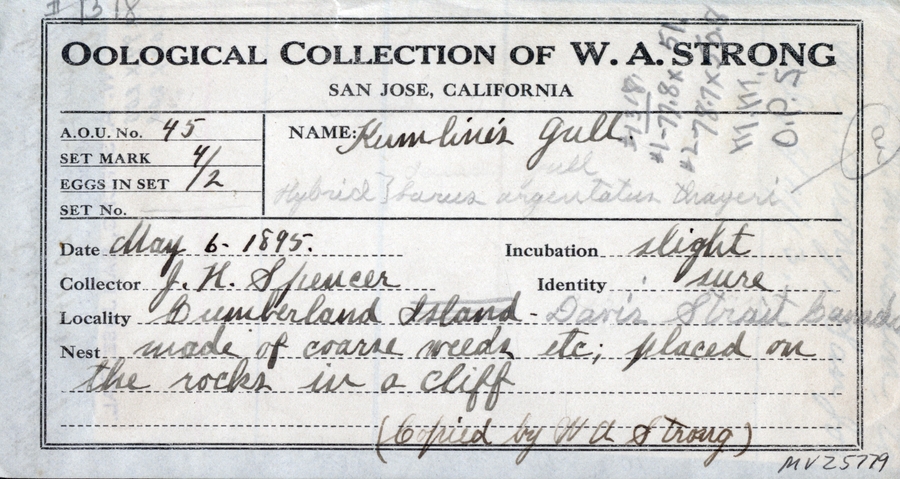 # 1318
OOLOGICAL COLLECTION OF W. A. STRONG
SAN JOSE, CALIFORNIA
A.O.U. No. 45
SET MARK 4/2
EGGS IN SET
SET No.
NAME: Kumlinis Gull
gull
Hybrid } Larus argentatus thayeri
#1318
#1-77.8 x 51.
#2-78.7 x 50.8
M.M.
O.D.S
Date May 6 - 1895.
Incubation slight
Collector J. H. Spencer
Identity sure
Locality Cumberland Island - Davis Strait Canada
Nest made of coarse weeds etc; placed on
the rocks in a cliff
(Copied by W A Strong)
MVZ 5779